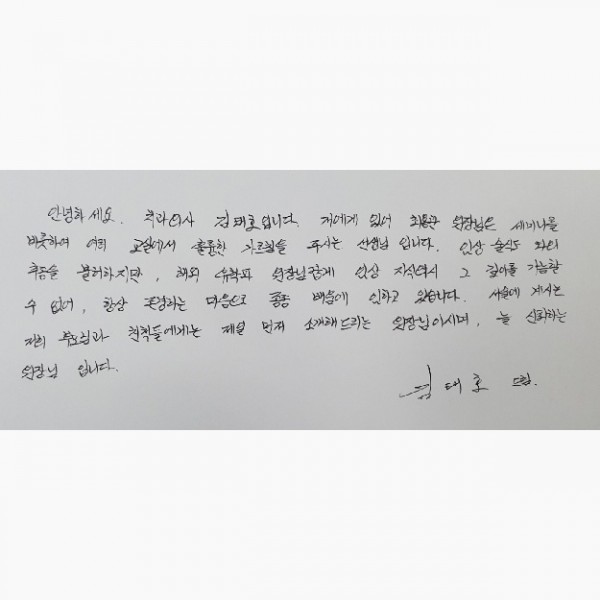 안녕하세요. 치과의사 김태호입니다. 저에게 있어 원장님은 세미나를
비롯하여 여러 교실에서 훌륭한 가르침을 주시는 선생님 입니다. 임상 술식도 타의
추종을 불허하지만, 해외 유학파 원장님답게 임상 지식역시 그 깊이를 가늠할
수 없어, 항상 존경하는 마음으로 종종 배움에 임하고 있습니다. 서울에 계시는
저희 부모님과 친척들에게는 제일 먼저 소개해드리는 원장님이시며, 늘 신뢰하는
원장님 입니다.
김태호 드림.